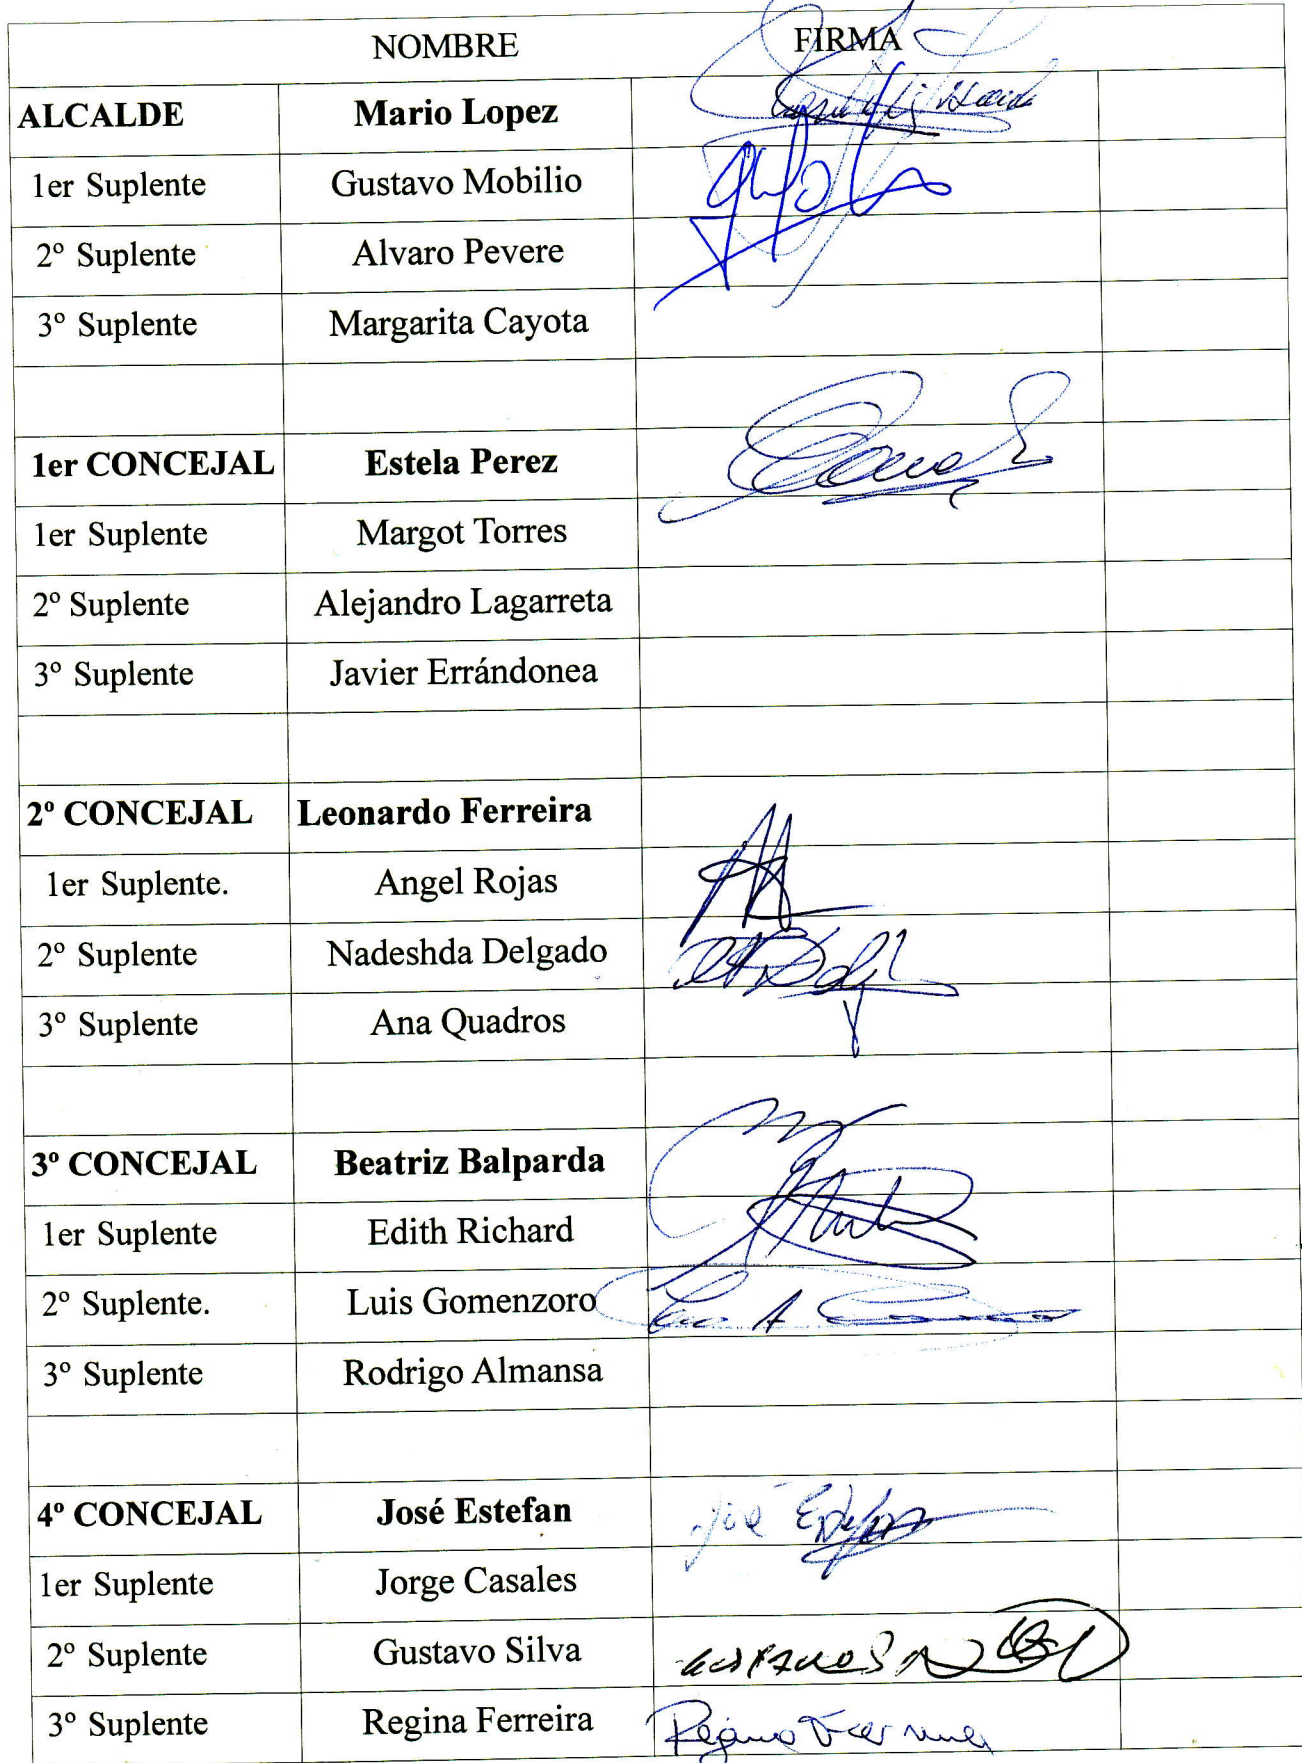 NOMBRE FIRMA
ALCALDE Mario Lopez
1er Suplente Gustavo Mobilio
2º Suplente Alvaro Pevere
3º Suplente Margarita Cayota
1er CONCEJAL Estela Perez
1er Suplente Margot Torres
2º Suplente Alejandro Lagarreta
3º Suplente Javier Errándonea
2º CONCEJAL Leonardo Ferreira
1er Suplente. Angel Rojas
2º Suplente Nadeshda Delgado
3º Suplente Ana Quadros
3º CONCEJAL Beatriz Balparda
1er Suplente Edith Richard
2º Suplente. Luis Gomenzoro
3º Suplente Rodrigo Almansa
4º CONCEJAL José Estefan José Estefan
1er Suplente Jorge Casales
2º Suplente Gustavo Silva
3º Suplente Regina Ferreira Regina